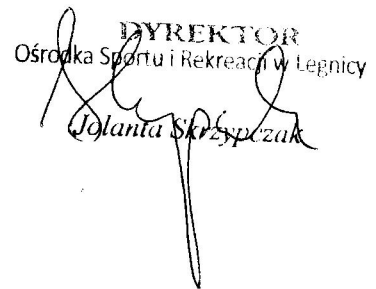 DYREKTOR
Ośrodka Sportu i Rekreacji w Legnicy
Jolanta Skrzypczak